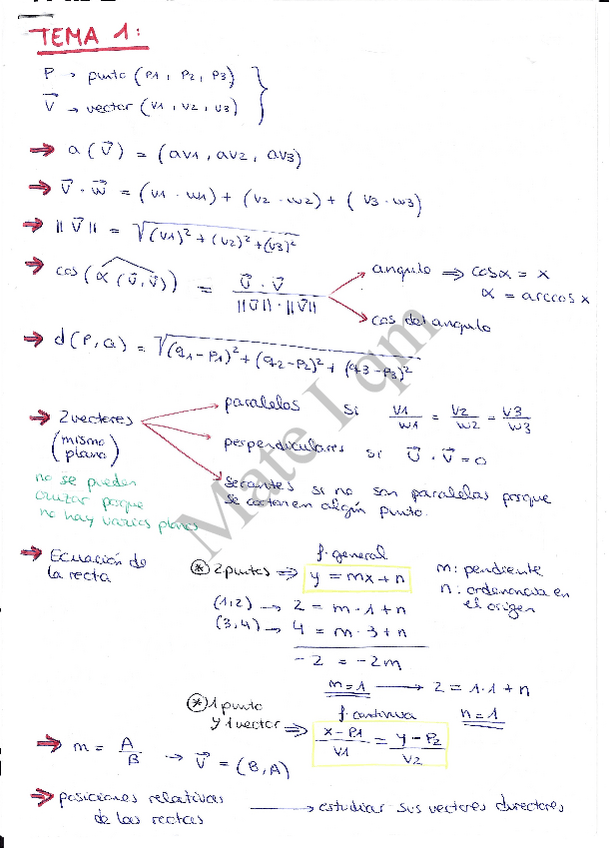 TEMA 1:
P → punto (P1, P2, P3)
V⃗ → vector (v1, v2, v3)
→ a(V⃗) = (av1, av2, av3)
→ V⃗ · W⃗ = (v1 · w1) + (v2 · w2) + (v3 · w3)
→ ||V⃗|| = √(v1)² + (v2)² + (v3)²
→ cos(α(U⃗, V⃗)) = U⃗ · V⃗ / ||U⃗|| · ||V⃗||
angulo ⇒ cosα = x
α = arccos x
cos del angulo
→ d(P, Q) = √(q1 - P1)² + (q2 - P2)² + (q3 - P3)²
→ 2 vectores
(mismo plano)
paralelos si v1/w1 = v2/w2 = v3/w3
perpendiculares si U⃗ · V⃗ = 0
secantes si no son paralelas porque
se cortan en algún punto.
no se pueden
cruzar porque
no hay varios planos
→ Ecuación de
la recta
* 2 puntos ⇒ f. general
y = mx + n
m: pendiente
n: ordenancia en
el origen
(1,2) → 2 = m · 1 + n
(3,4) → 4 = m · 3 + n
-2 = -2m
m = 1 → 2 = 1·1 + n
n = 1
* 1 punto
y 1 vector ⇒ f. continua
x - P1 / v1 = y - P2 / v2
→ m = A/B → V⃗ = (B, A)
→ posiciones relativas
de las rectas → estudiar sus vectores directores
Mate I qm